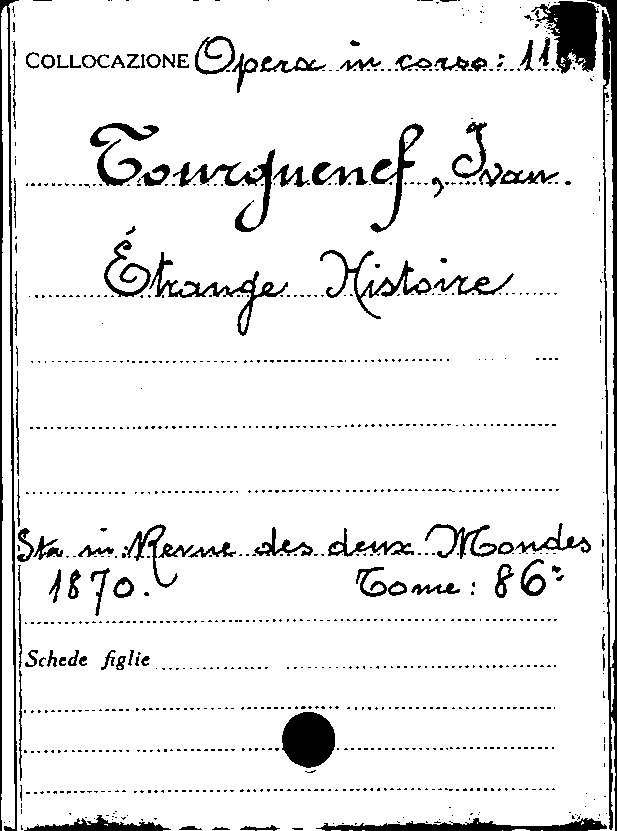 COLLOCAZIONE Opera in corso: 116
Tourguenef, Ivan.
Étrange Histoire
Sta in: Revue des deux Mondes
1870. Tome: 86º
Schede figlie